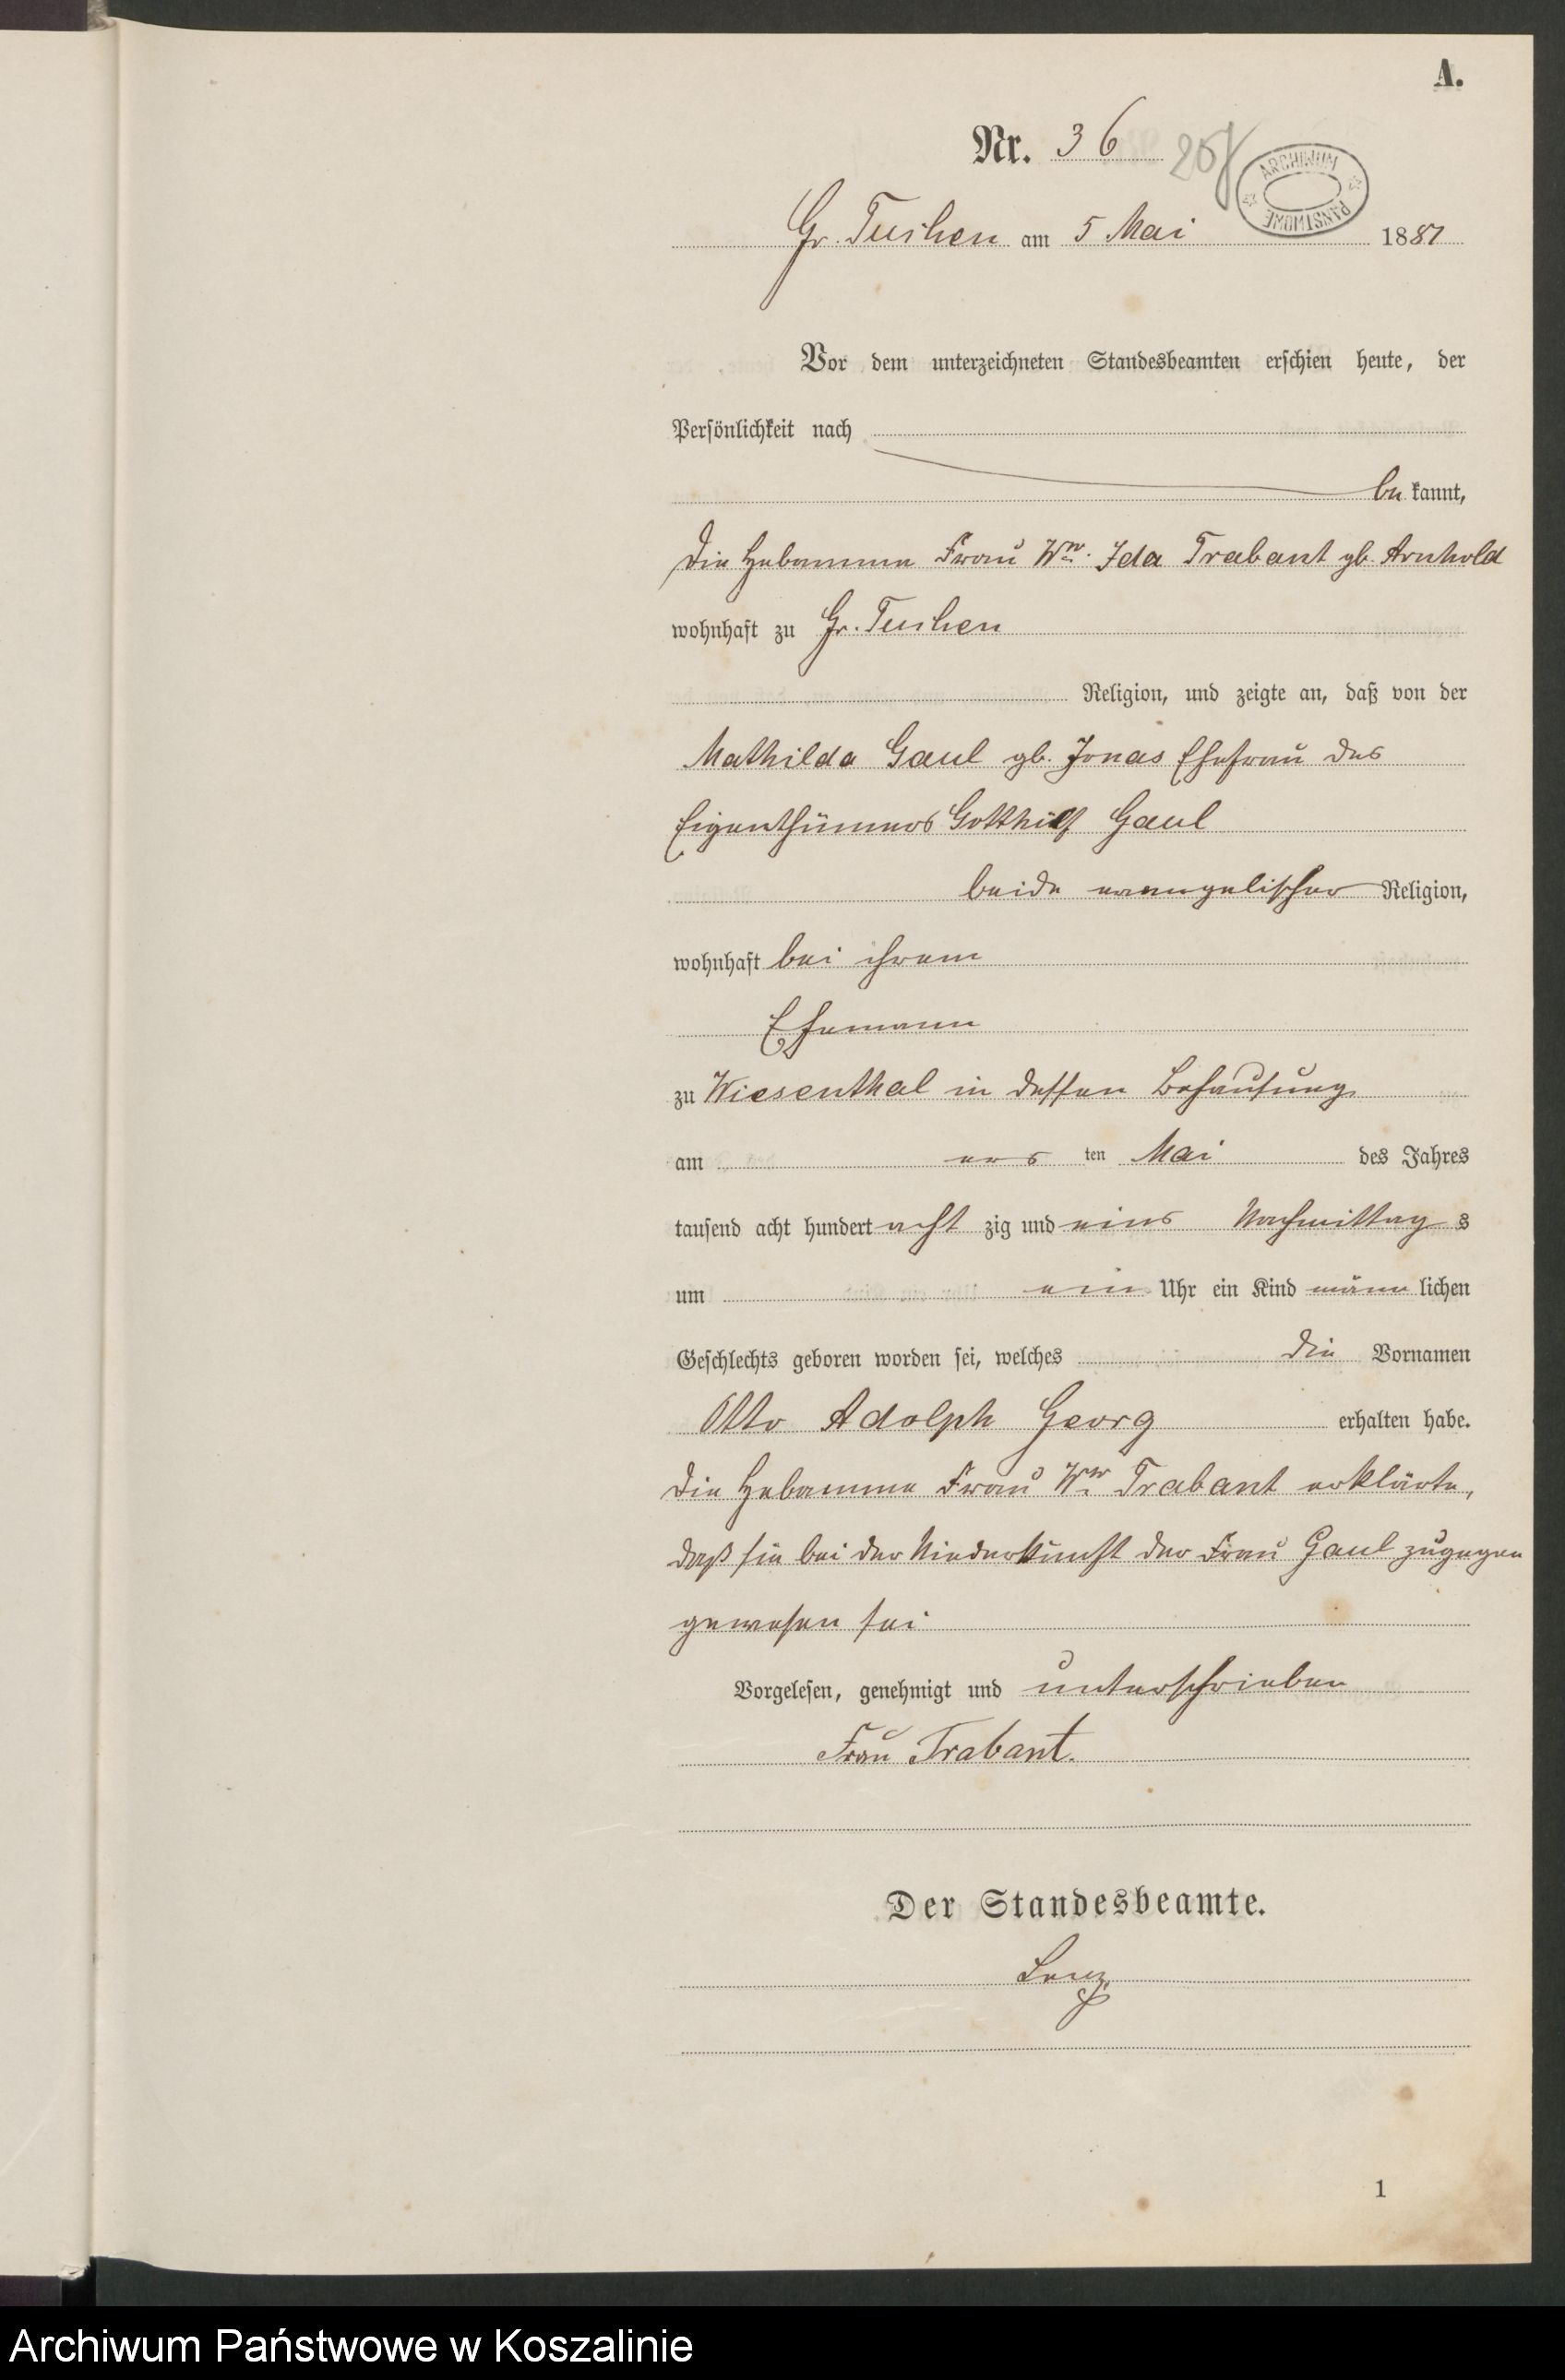 A.
Nr. 36
ARCHIWUM PAŃSTWOWE
Gr. Tuchen am 5 Mai 1881
Vor dem unterzeichneten Standesbeamten erschien heute, der
Persönlichkeit nach
be kannt,
die Hebamme Frau Ww. Ida Trabant gb. Arnhold
wohnhaft zu Gr. Tuchen
Religion, und zeigte an, daß von der
Mathilda Gaul gb. Jonas Ehefrau des
Eigenthümers Gotthilf Gaul
beide evangelischer Religion,
wohnhaft bei ihrem
Ehemann
zu Wiesenthal in dessen Behausung
am ers ten Mai des Jahres
tausend acht hundert acht zig und eins Nachmittag s
um ein Uhr ein Kind männ lichen
Geschlechts geboren worden sei, welches die Vornamen
Otto Adolph Georg erhalten habe.
die Hebamme Frau Ww Trabant erklärte,
daß sie bei der Niederkunft der Frau Gaul zugegen
gewesen sei
Vorgelesen, genehmigt und unterschrieben
Frau Trabant.
Der Standesbeamte.
Lenz
1
Archiwum Państwowe w Koszalinie